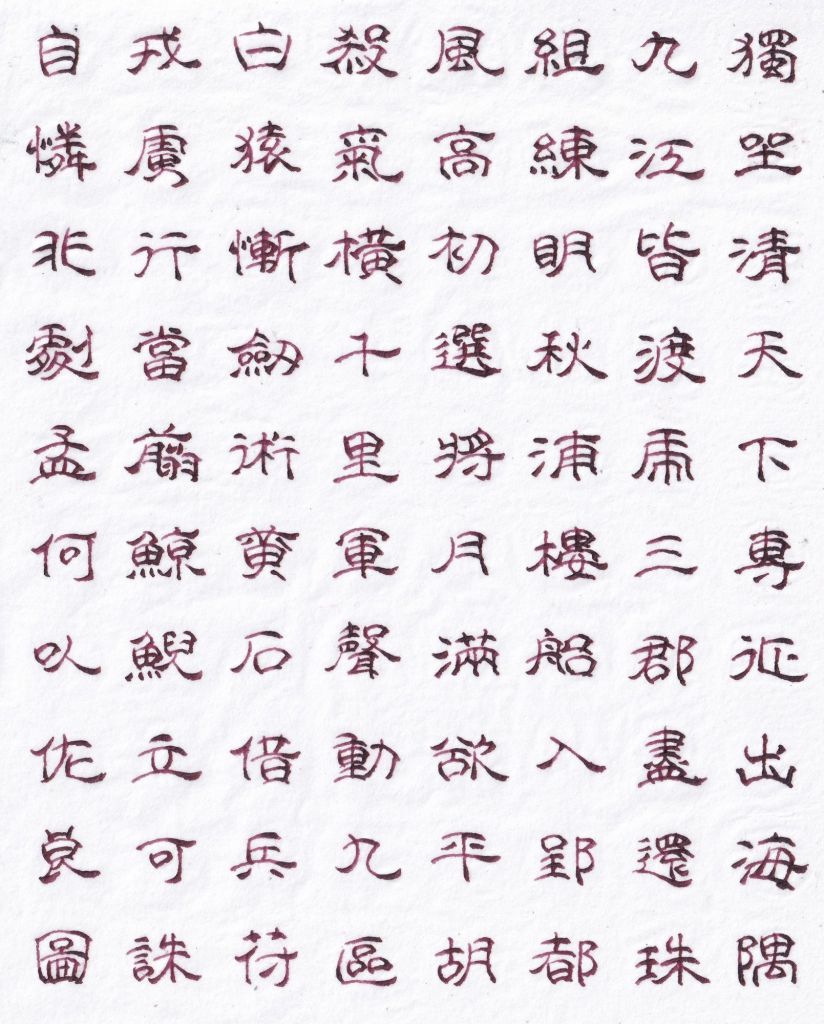 獨坐清天下專征出海隅
九江皆渡虎三郡盡還珠
組練明秋浦樓船入郢都
風高初選將月滿欲平胡
殺氣橫千里軍聲動九區
白猿慚劒術黃石借兵符
戎虜行當翦鯨鯢立可誅
自憐非劇孟何以佐良圖